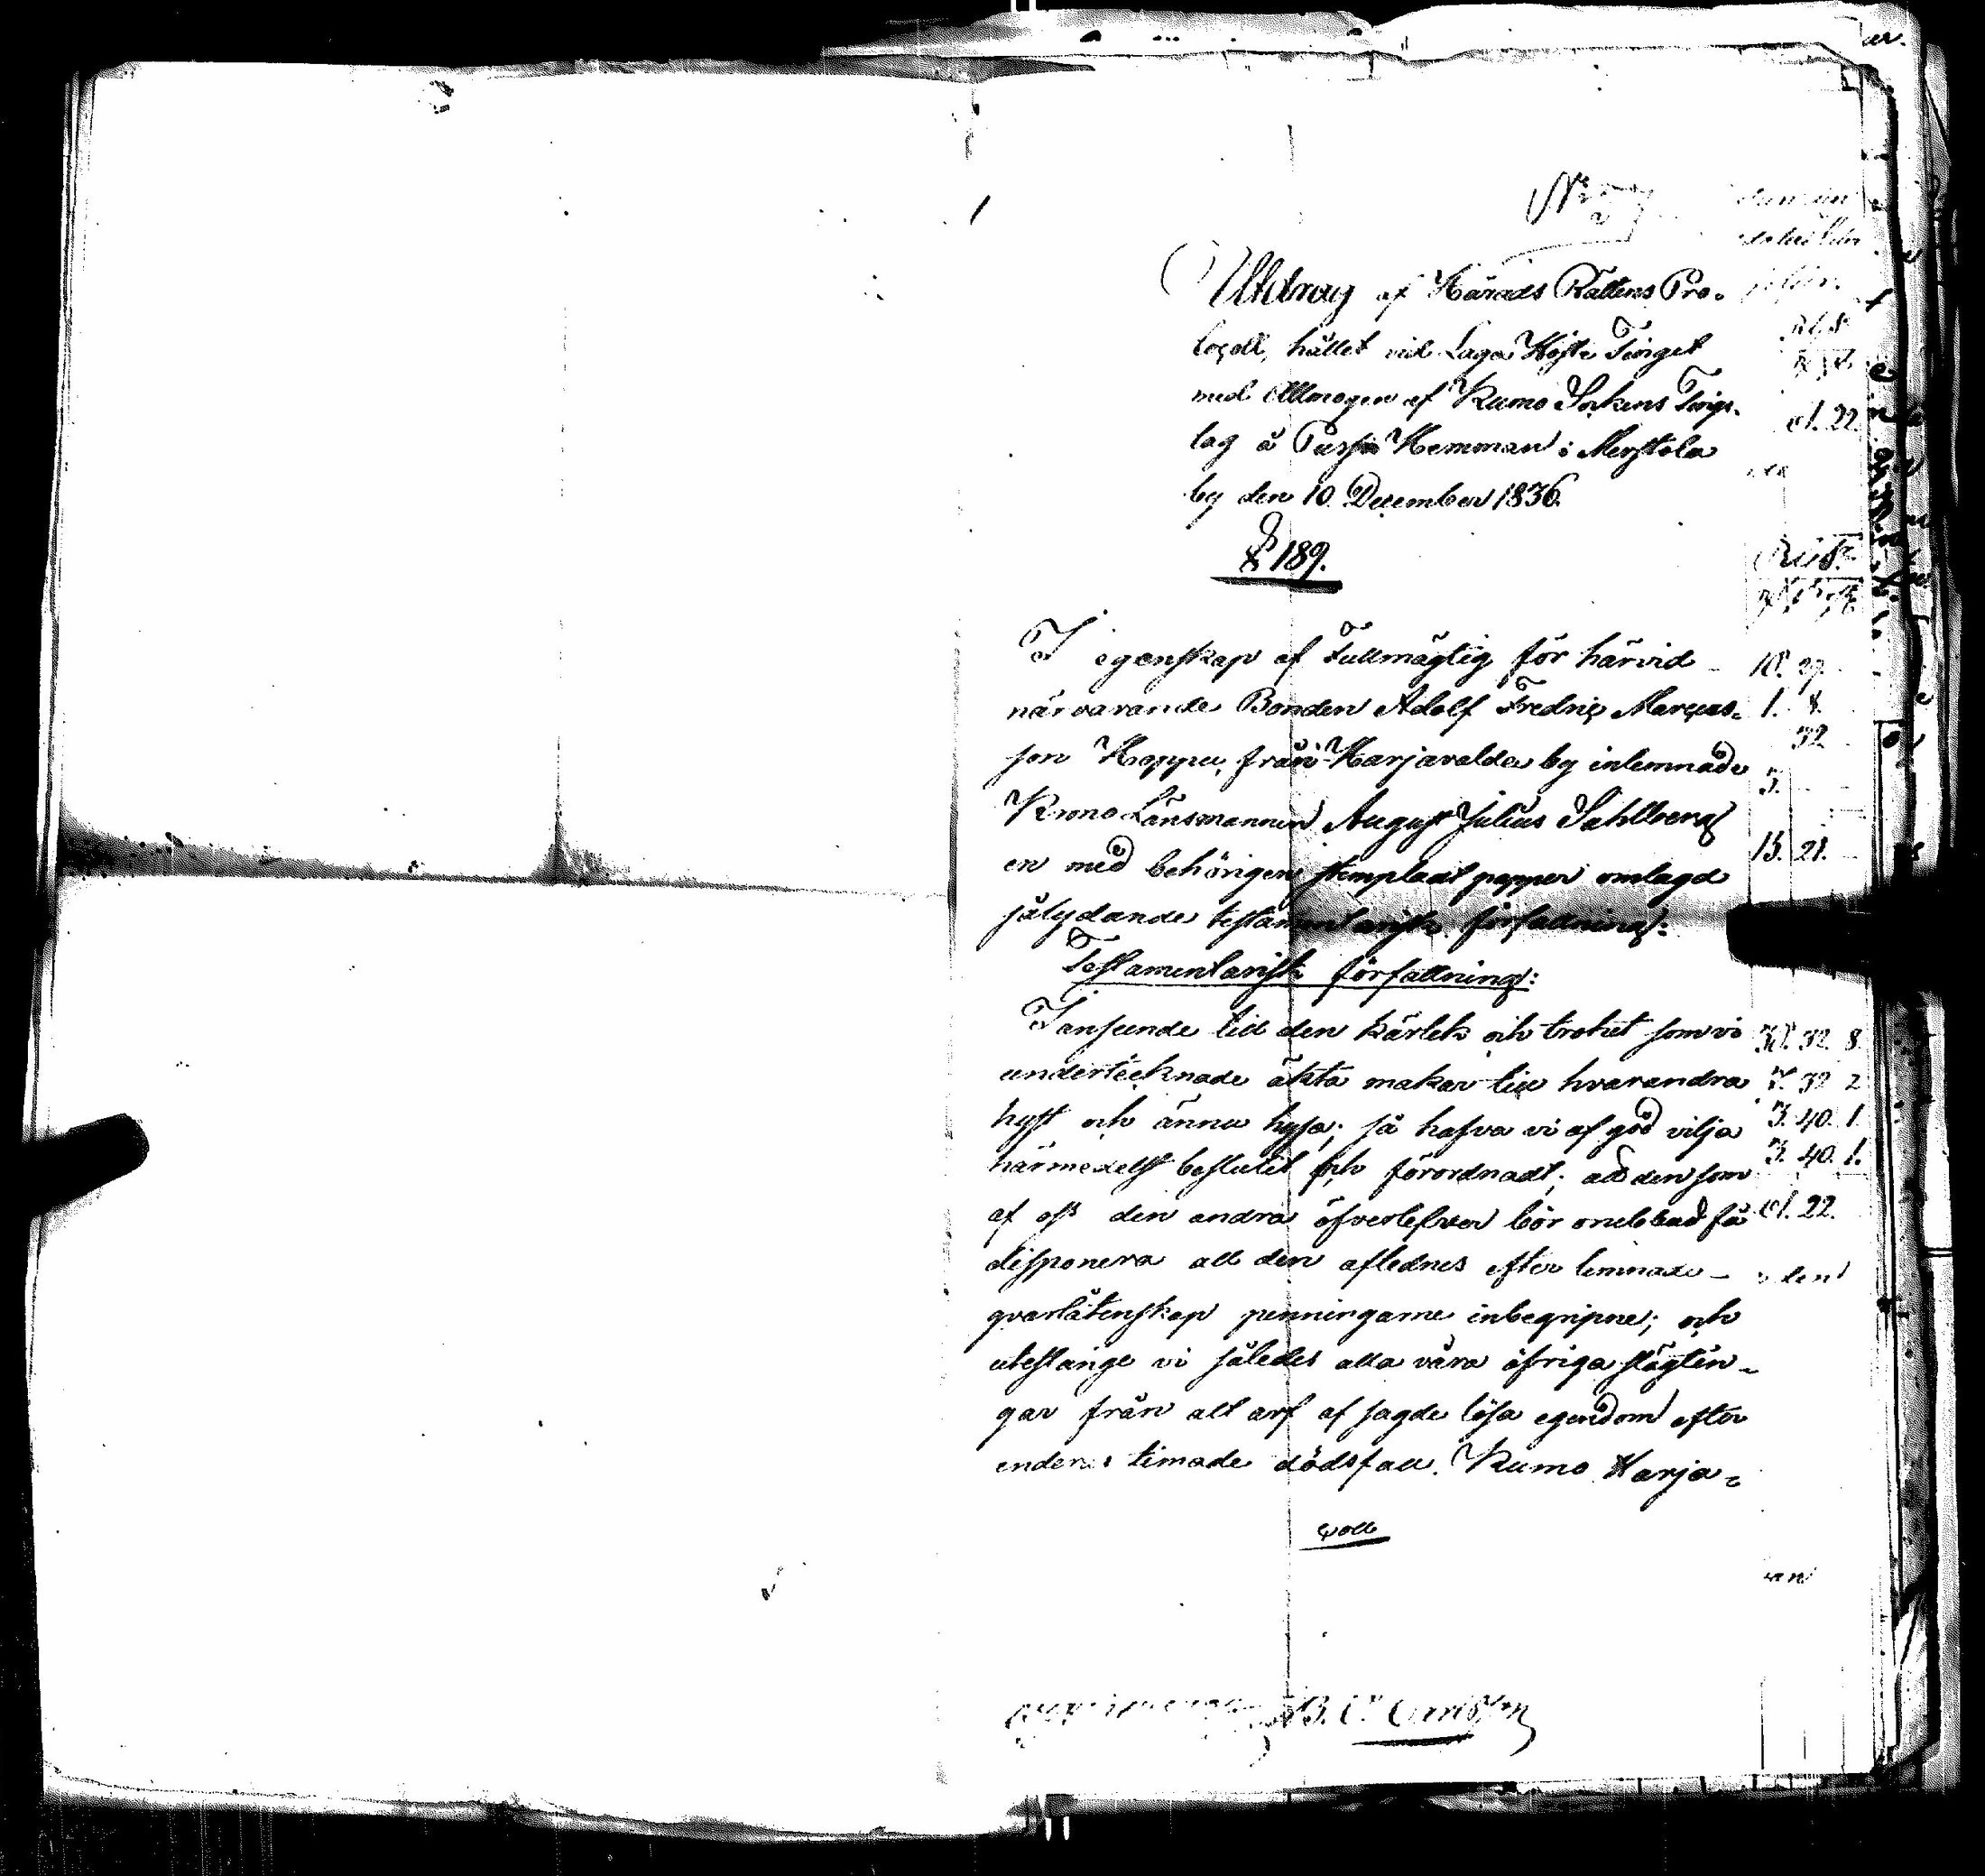 Utdrag af Härads Rättens Pro-
tocoll, hållet vid Laga Höste Tinget
med Allmogen af Kumo Sokens Tings-
lag å Pusſa Hemman i Merstola
by den 10 December 1836.
§ 189.
I egenskap af Fullmägtig för härvid
närvarande Bonden Adolf Fredric Marcus-
son Hoppu, från Harjavalda by inlemnade
Krono Länsmannen August Julius Sahlberg
en med behörigen stemplaat papper omlagd
sålydande testamentarisk författning:
Testamentarisk författning:
I anseende till den kärlek och trohet som vi
undertecknade äkta makar till hvarandra
hyst och ännu hysa; så hafva vi af god vilja
härmedelst beslutit och förordnadt, att den som
af oss den andra öfverlefver bör oneklad få
disponera all den aflednes efter lemnade
qvarlåtenskap penningarne inbegripne; och
utestänge vi således alla våra öfriga slägtin-
gar från allt arf af sagde lösa egendom efter
enderas timade dödsfall. Kumo Harja-
10. 27.
1. 8.
32
3.
13. 21.
32. 8
7. 32 2
3. 40. 1.
3. 40. 1.
22.